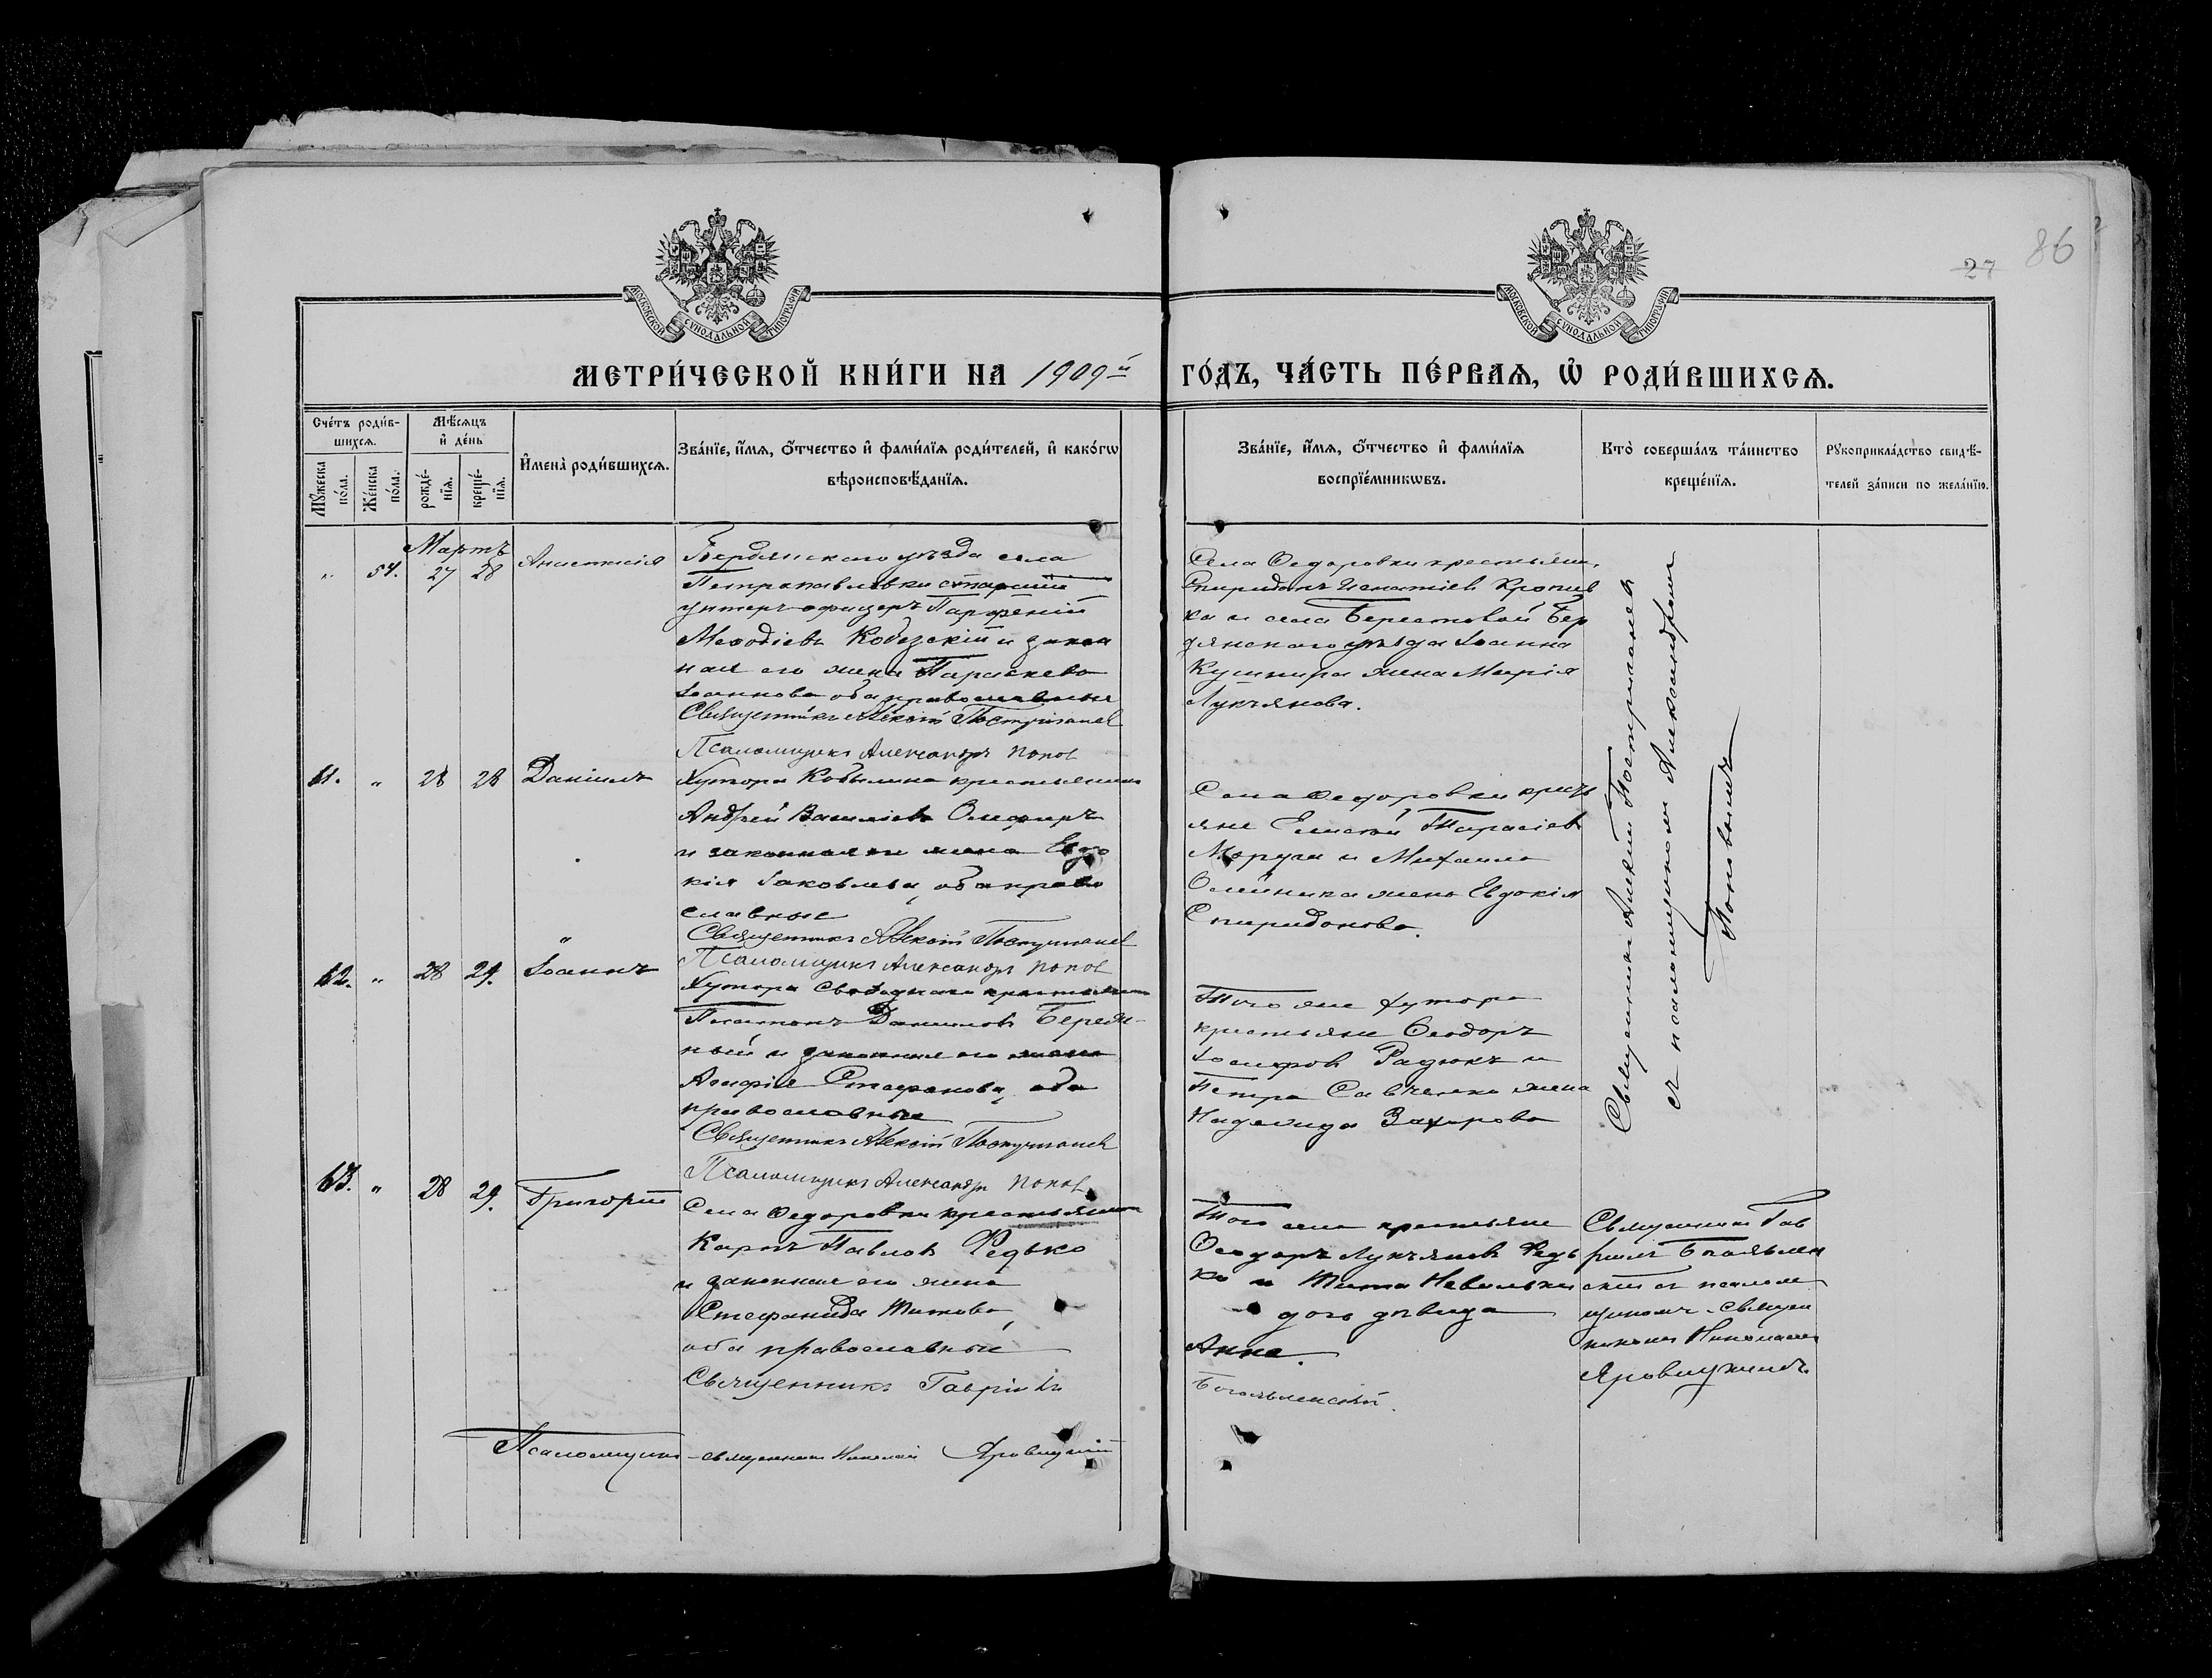 86
27
МОСКОВСКОЙ СѴНОДАЛЬНОЙ ТИПОГРАФІИ
МОСКОВСКОЙ СѴНОДАЛЬНОЙ ТИПОГРАФІИ
МЕТРИ́ЧЕСКОЙ КНИ́ГИ НА 1909й ГО́ДЪ, ЧА́СТЬ ПЕ́РВАѦ, Ѡ҆ РОДИ́ВШИХСѦ.
Сче́тъ роди́вшихсѧ.
Мꙋ́жеска по́ла.
Же́нска по́ла.
Мѣ́сѧцъ и҆ де́нь
рожде́нїѧ.
креще́нїѧ.
И҆мена̀ роди́вшихсѧ.
Зва́нїе, и҆́мѧ, ѻ҆́тчество и҆ фами́лїѧ роди́телей, и҆ како́гѡ
вѣроисповѣ́данїѧ.
Зва́нїе, и҆́мѧ, ѻ҆́тчество и҆ фами́лїѧ
воспрїе́мникѡвъ.
Кто̀ соверша́лъ та́инство
креще́нїѧ.
Рꙋкоприкла́дство свидѣ́-
телей за́писи по жела́нїю.
Мартъ
" 54. 27 28 Анастасія
Бердянскаго уѣзда села
Петропавловки старшій
унтеръ-офицеръ Парфеній
Меѳодіевъ Кобзскій и закон
ная его жена Параскева
Іоаннова оба православные
Священникъ Алексій
Псаломщикъ Александръ Попов
Села Ѳедоровки крестьян.
Спиридонъ Игнатіевъ
ка и села Берестовой Бер
дянскаго уѣзда Іоанна
Кушнира жена Марія
Лукъянова.
Священникъ Алексій
съ псаломщикомъ Александромъ
Поповымъ
61. " 28 28 Даніилъ
Хутора Кобылина крестьянинъ
Андрей Василіевъ Олефиръ
и законная его жена Евдо
кія Іаковлева, оба право
славные
Священникъ Алексій
Псаломщикъ Александръ Попов
Села Ѳедоровки кресть
яне Елисей Тарасіев
и Михаила
Олейника жена Евдокія
Спиридонова.
62. " 28 29. Іоаннъ
Хутора Свободнаго крестьянинъ
Платонъ Даніиловъ
ный и законная его жена
Агафія Стефанова, оба
православные
Священникъ Алексій
Псаломщикъ Александръ Попов
Того же хутора
крестьяне Ѳеодоръ
Іосифов Радюкъ и
Петра Савченко жена
Надежда Захарова
63. " 28 29. Григорій
Села Ѳедоровки крестьянинъ
Карпъ Павловъ Редько
и законная его жена
Стефанида Титова,
оба православные
Священникъ Гавріилъ
Того села крестьяне
Ѳеодоръ Лукъяновъ Редь
ко и Тита
дочь дѣвица
Анна.
Богоявленскій.
Священникъ Гав
ріилъ Богоявлен
скій съ псалом
щикомъ-священ
никомъ Николаемъ
Яровицкимъ.
Псаломщикъ-священникъ Николай Яровицкій